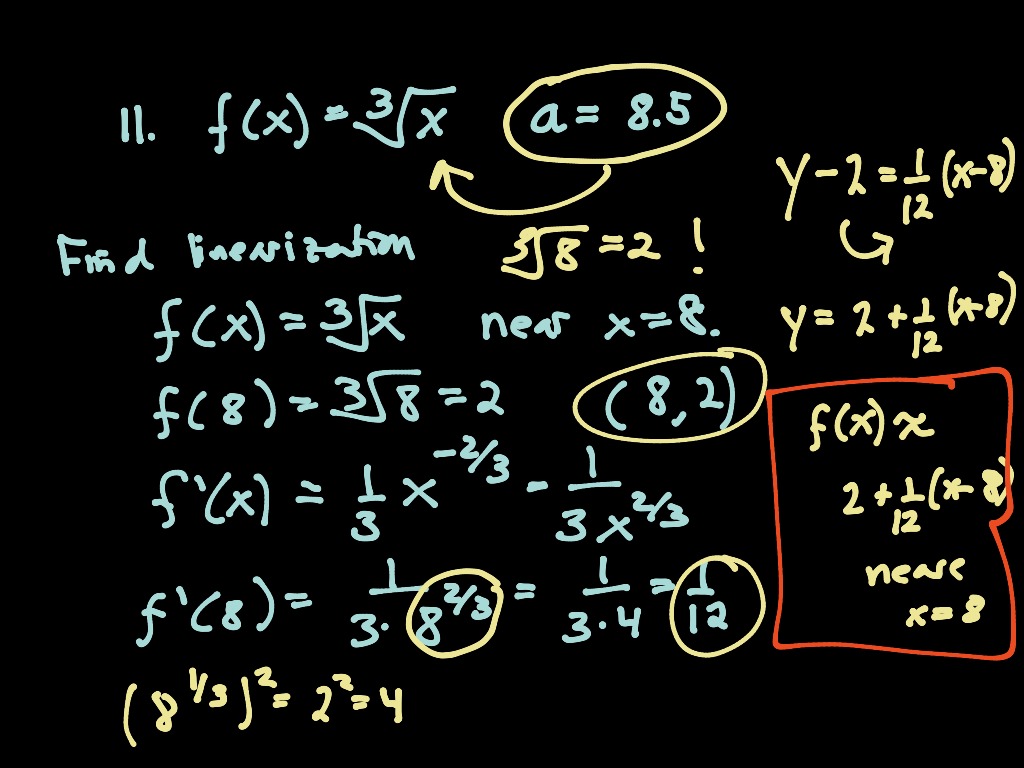 11. f(x) = ∛x a = 8.5
Find linearization ∛8 = 2 !
f(x) = ∛x near x = 8.
f(8) = ∛8 = 2 (8, 2)
f'(x) = 1/3 x^(-2/3) = 1/(3x^(2/3))
f'(8) = 1/(3·8^(2/3)) = 1/(3·4) = 1/12
(8^(1/3))² = 2² = 4
y - 2 = 1/12 (x-8)
y = 2 + 1/12 (x-8)
f(x) ≈
2 + 1/12 (x-8)
near
x = 8